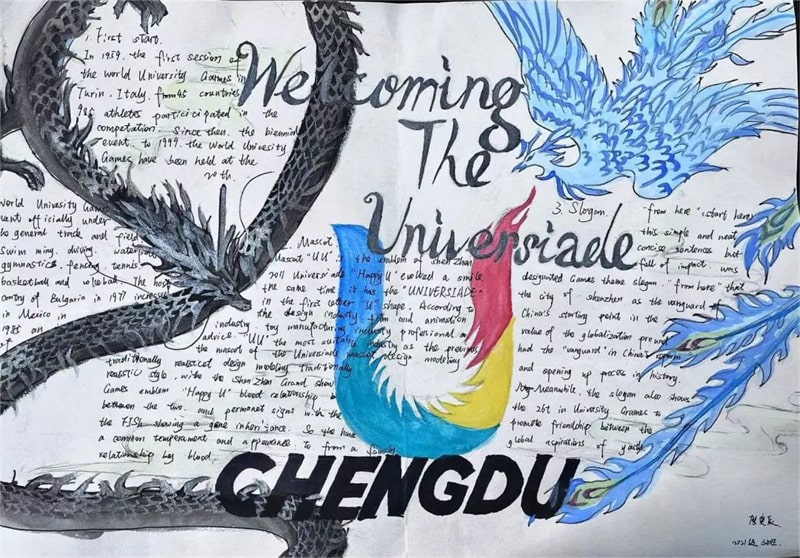 Welcoming
The
Universiade
1. First start.
In 1959, the first session of
the world University Games in
Turin, Italy. from 45 countries
985 athletes participated in the
competation. Since then, the biennial
event to 1999, the World University
Games have been held at the
20th.
world University Games
went officially under
be general track and field
swimming, diving, waterpolo
gymnastics, fencing, tennis
basketball and volleyball. The host
country of Bulgaria in 1977 increased
in Mexico in
1985 an
2. Mascot
Mascot "UU" is the emblem of ShenZhen
2011 Universiade "Happy U" evolved a smile
the same time it has the "UNIVERSIADE"
in the first letter "U" shape. According to
the design industry, film and animation
industry toy manufacturing industry professional
advice. "UU" the most suitable industry as the previous
the mascot of the Universiade mascot design modeling
traditionally realistical design modeling traditionally
realistic style, with the ShenZhen Grand show
Games emblem "Happy U" blood relationship
between the two, and permanet signs with the
the FISU showing a gene inheritance. So the have
a common temperament and appearance to from a family
relationship by blood.
3. Slogan. "from here" "start here"
this simple and neat
concise sentences but
full of impact was
designated Games theme slogan. "from here" that
the city of shenzhen as the vanguard of
China's starting point in the
value of the globalization
had the "vanguard" in China's
and opening up process in history.
Meanwhile, the slogan also shows
the 26t in University Games to
promote friendship between the
global aspirations of youth.
CHENGDU